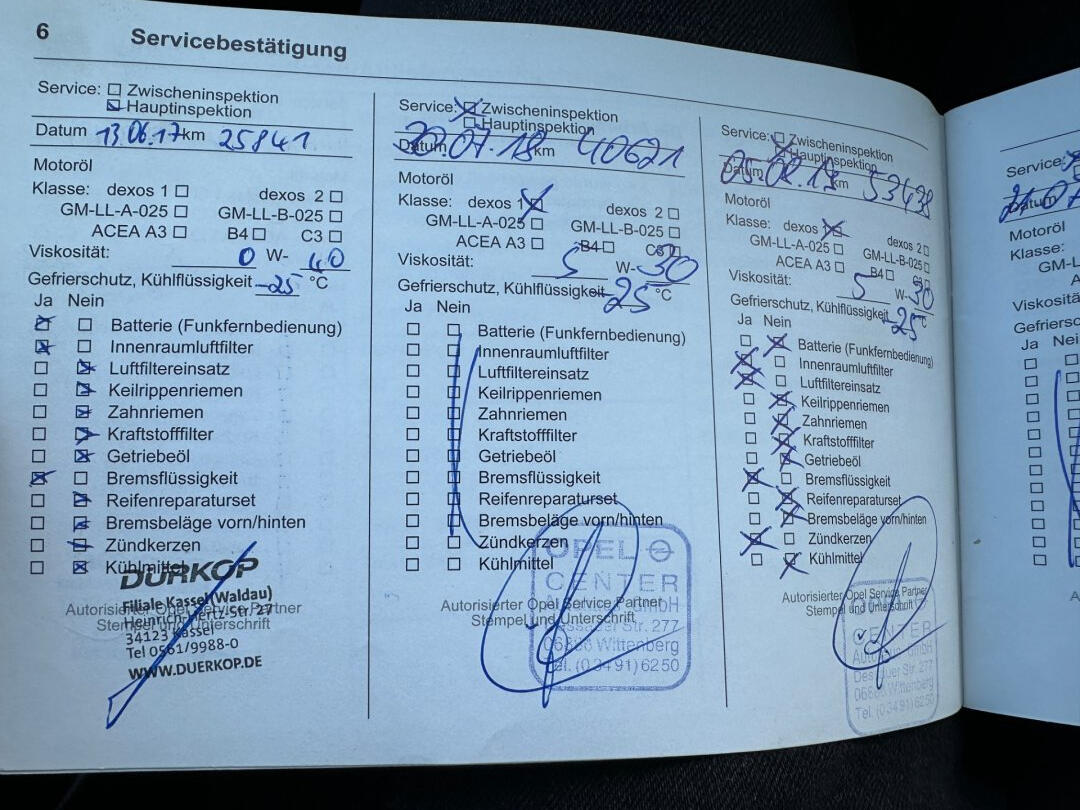 6
Servicebestätigung
Service: ☐ Zwischeninspektion
☒ Hauptinspektion
Datum 13.06.17 km 25841
Motoröl
Klasse: dexos 1 ☐ dexos 2 ☐
GM-LL-A-025 ☐ GM-LL-B-025 ☐
ACEA A3 ☐ B4 ☐ C3 ☐
Viskosität: 0 W- 40
Gefrierschutz, Kühlflüssigkeit -25 °C
Ja Nein
☒ ☐ Batterie (Funkfernbedienung)
☒ ☐ Innenraumluftfilter
☐ ☒ Luftfiltereinsatz
☐ ☒ Keilrippenriemen
☐ ☒ Zahnriemen
☐ ☒ Kraftstofffilter
☐ ☒ Getriebeöl
☒ ☐ Bremsflüssigkeit
☐ ☒ Reifenreparaturset
☐ ☒ Bremsbeläge vorn/hinten
☐ ☒ Zündkerzen
☐ ☒ Kühlmittel
DÜRKOP
Filiale Kassel (Waldau)
Autorisierter Opel Service Partner
Heinrich-Hertz-Str. 27
Stempel und Unterschrift
34123 Kassel
Tel 0561/9988-0
WWW.DUERKOP.DE
Service: ☒ Zwischeninspektion
☐ Hauptinspektion
Datum 20.07.18 km 40621
Motoröl
Klasse: dexos 1 ☒ dexos 2 ☐
GM-LL-A-025 ☐ GM-LL-B-025 ☐
ACEA A3 ☐ B4 ☐ C3 ☐
Viskosität: 5 W- 30
Gefrierschutz, Kühlflüssigkeit -25 °C
Ja Nein
☐ ☐ Batterie (Funkfernbedienung)
☐ ☐ Innenraumluftfilter
☐ ☐ Luftfiltereinsatz
☐ ☐ Keilrippenriemen
☐ ☐ Zahnriemen
☐ ☐ Kraftstofffilter
☐ ☐ Getriebeöl
☐ ☐ Bremsflüssigkeit
☐ ☐ Reifenreparaturset
☐ ☐ Bremsbeläge vorn/hinten
☐ ☐ Zündkerzen
☐ ☐ Kühlmittel
OPEL
CENTER
GmbH
Autorisierter Opel Service Partner
Stempel und Unterschrift
Dessauer Str. 277
06886 Wittenberg
Tel. (03491) 6250
Service: ☐ Zwischeninspektion
☒ Hauptinspektion
Datum km 53438
Motoröl
Klasse: dexos 1 ☒ dexos 2 ☐
GM-LL-A-025 ☐ GM-LL-B-025 ☐
ACEA A3 ☐ B4 ☐
Viskosität: 5 W- 30
Gefrierschutz, Kühlflüssigkeit -25 °C
Ja Nein
☐ ☒ Batterie (Funkfernbedienung)
☒ ☐ Innenraumluftfilter
☒ ☐ Luftfiltereinsatz
☐ ☒ Keilrippenriemen
☐ ☒ Zahnriemen
☐ ☒ Kraftstofffilter
☐ ☒ Getriebeöl
☒ ☐ Bremsflüssigkeit
☐ ☒ Reifenreparaturset
☐ ☒ Bremsbeläge vorn/hinten
☒ ☐ Zündkerzen
☐ ☒ Kühlmittel
Autorisierter Opel Service Partner
Stempel und Unterschrift
CENTER
GmbH
Dessauer Str. 277
06886 Wittenberg
Tel. (03491) 6250
Service:
Datum
Motoröl
Klasse:
Ja